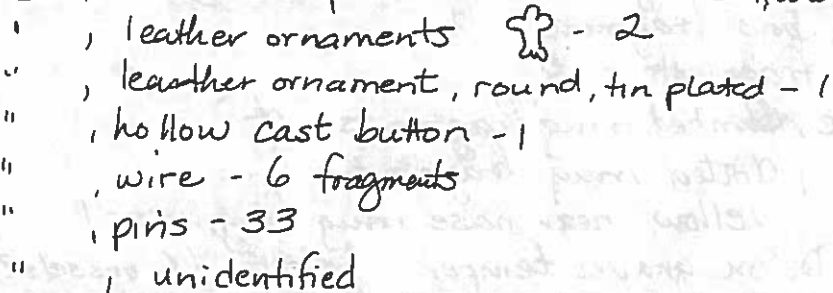 " , leather ornaments - 2
" , leather ornament, round, tin plated - 1
" , hollow cast button - 1
" , wire - 6 fragments
" , pins - 33
" , unidentified